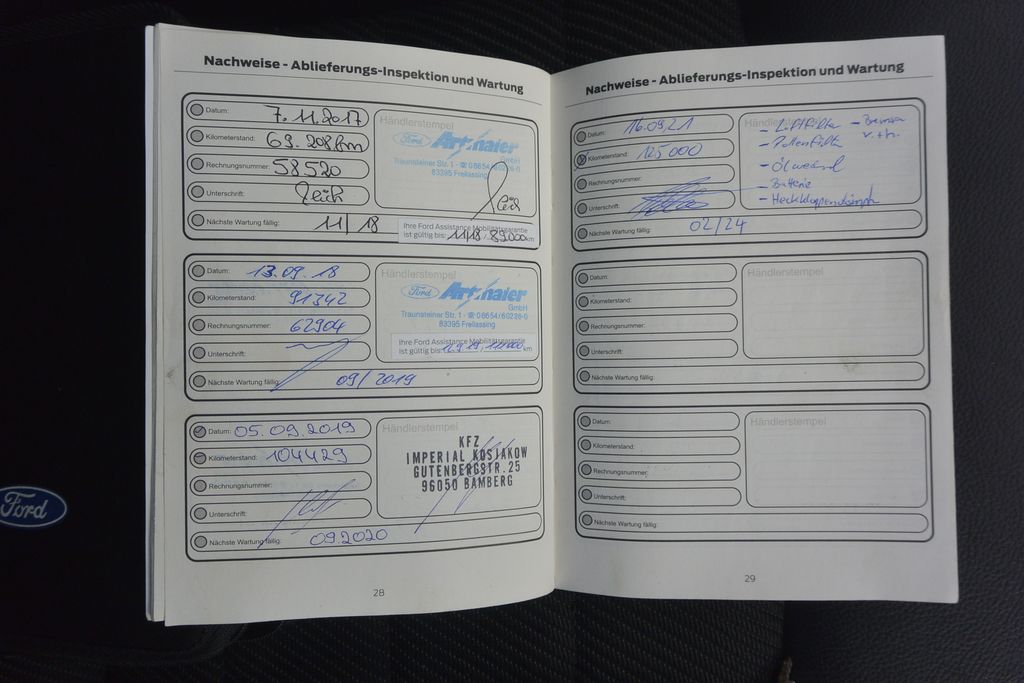 Nachweise - Ablieferungs-Inspektion und Wartung
Datum: 7.11.2017
Kilometerstand: 69.208km
Rechnungsnummer: 58520
Unterschrift:
Nächste Wartung fällig: 11/18
Händlerstempel
Ford Artmaier
GmbH
Traunsteiner Str. 1 · ☎ 08654/60226-0
83395 Freilassing
Ihre Ford Assistance Mobilitätsgarantie
ist gültig bis: 11/18 / 89.000 km
Datum: 13.09.18
Kilometerstand: 91342
Rechnungsnummer: 62904
Unterschrift:
Nächste Wartung fällig: 09/2019
Händlerstempel
Ford Artmaier
GmbH
Traunsteiner Str. 1 · ☎ 08654/60226-0
83395 Freilassing
Ihre Ford Assistance Mobilitätsgarantie
ist gültig bis: km
Datum: 05.09.2019
Kilometerstand: 104429
Rechnungsnummer:
Unterschrift:
Nächste Wartung fällig: 09.2020
Händlerstempel
KFZ
IMPERIAL KOSJAKOW
GUTENBERGSTR.25
96050 BAMBERG
28
Nachweise - Ablieferungs-Inspektion und Wartung
Datum: 16.09.21
Kilometerstand: 125000
Rechnungsnummer:
Unterschrift:
Nächste Wartung fällig: 02/24
Händlerstempel
- Luftfilter - Bremsen
- Pollenfilter v.+h.
- Ölwechsel
- Batterie
- Heckklappendämpfer
Datum:
Kilometerstand:
Rechnungsnummer:
Unterschrift:
Nächste Wartung fällig:
Händlerstempel
Datum:
Kilometerstand:
Rechnungsnummer:
Unterschrift:
Nächste Wartung fällig:
Händlerstempel
29
Ford